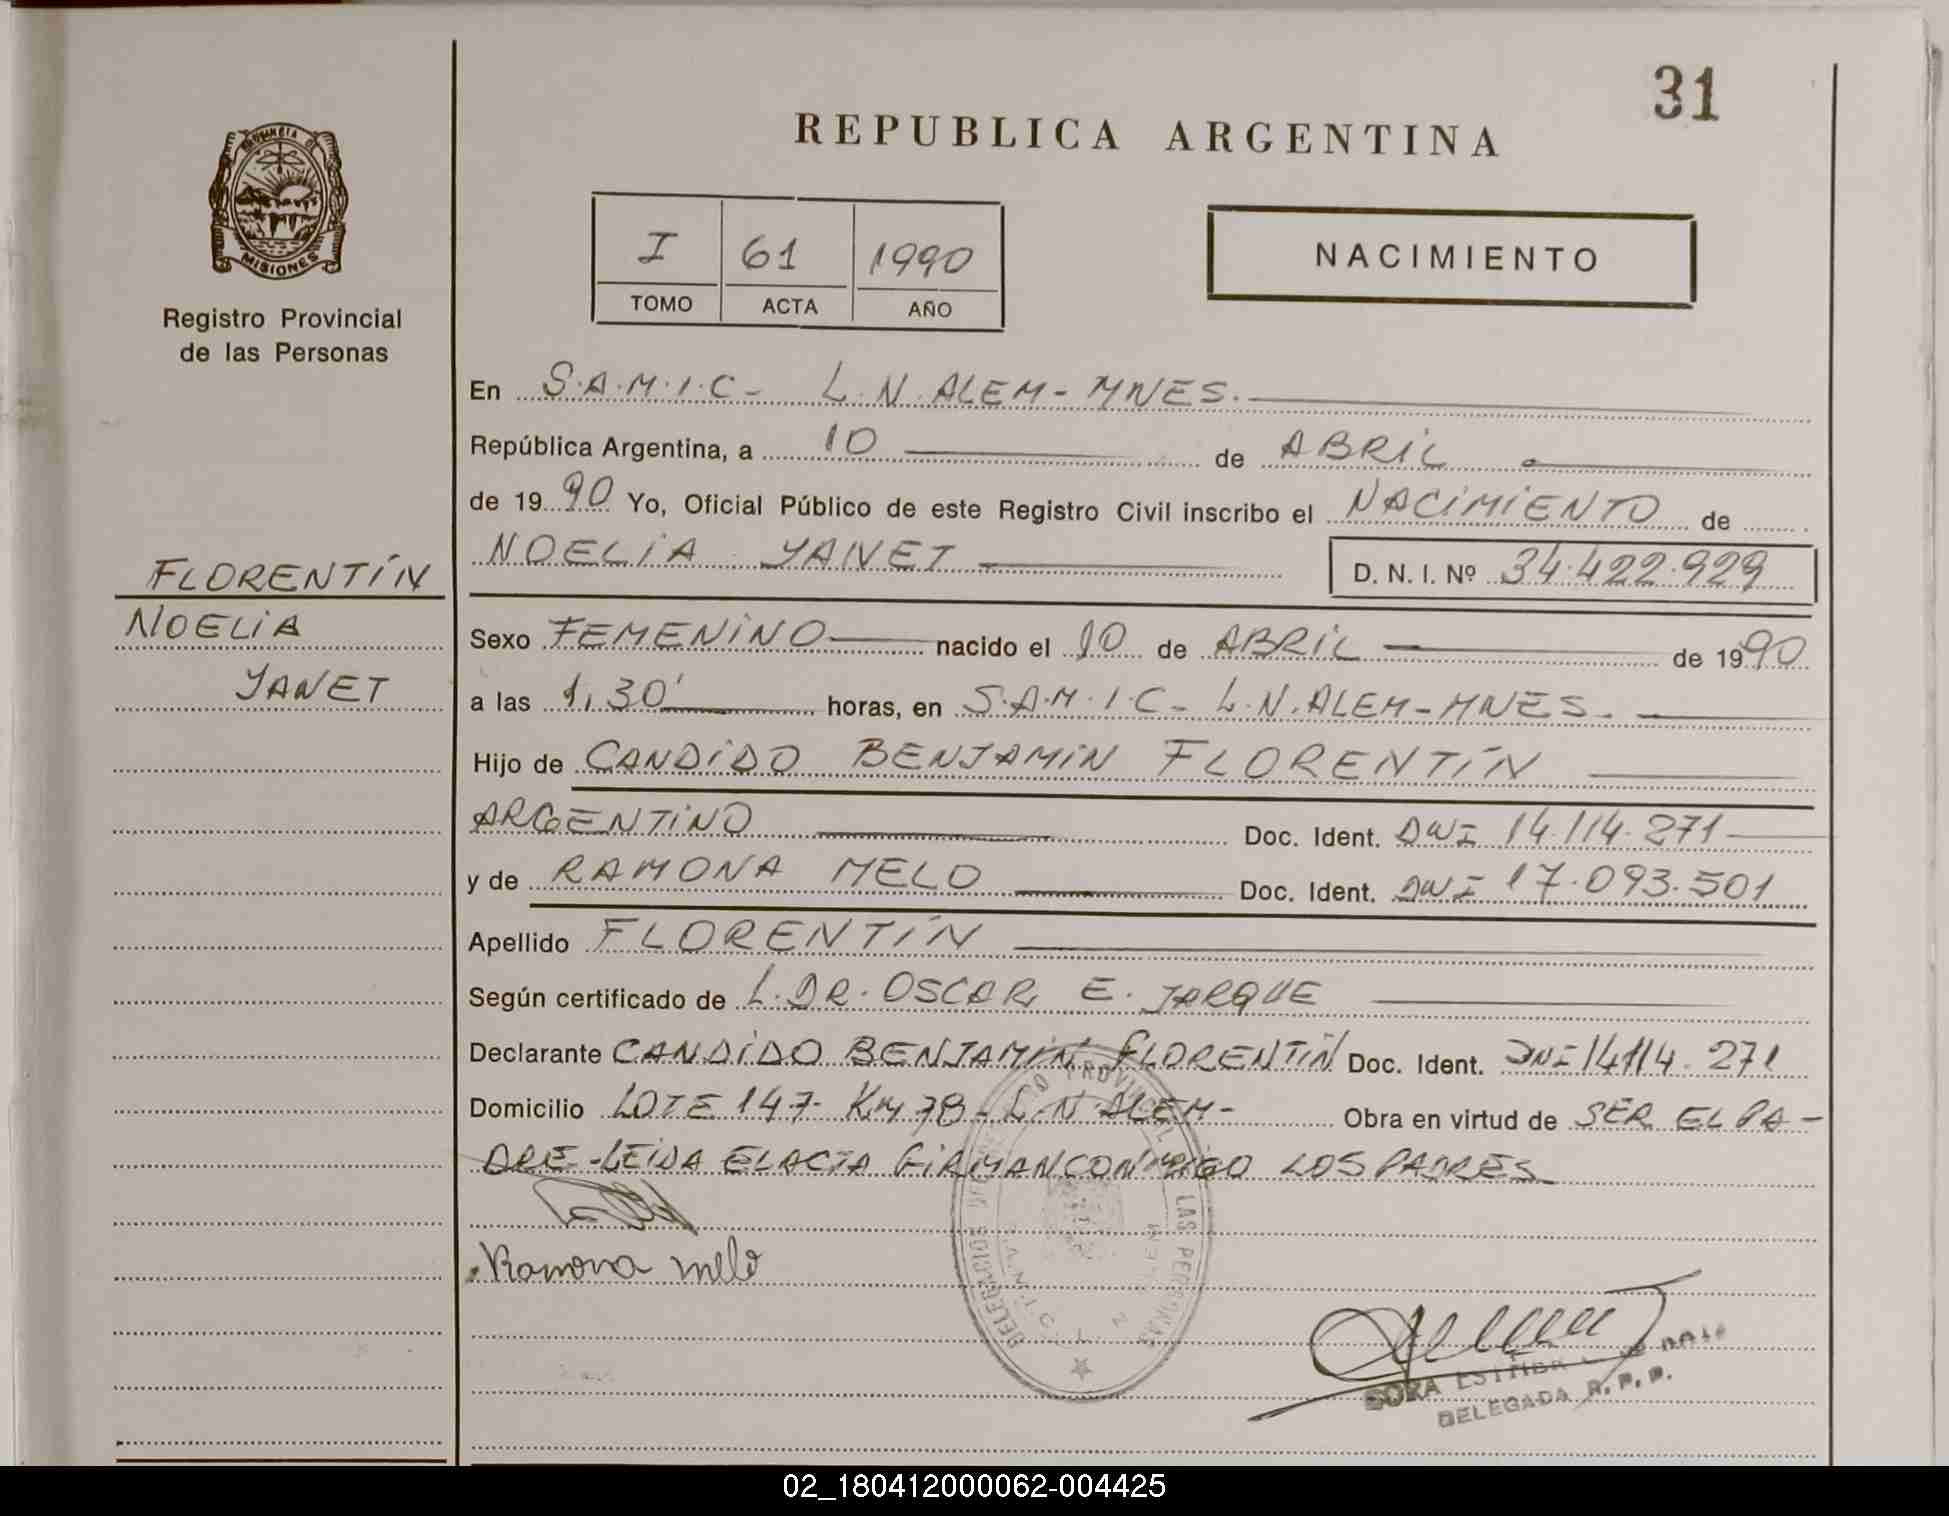 31
REPUBLICA ARGENTINA
PROVINCIA DE
MISIONES
Registro Provincial
de las Personas
I 61 1990
TOMO ACTA AÑO
NACIMIENTO
En S.A.M.I.C- L.N.ALEM-MNES.
República Argentina, a 10 de ABRIL
de 1990 Yo, Oficial Público de este Registro Civil inscribo el NACIMIENTO de
NOELIA YANET D. N. I. Nº 34.422.929
FLORENTÍN
NOELIA
YANET
Sexo FEMENINO nacido el 10 de ABRIL de 1990
a las 1,30' horas, en S.A.M.I.C- L.N.ALEM-MNES.
Hijo de CANDIDO BENJAMIN FLORENTÍN
ARGENTINO Doc. Ident. DNI 14.114.271
y de RAMONA MELO Doc. Ident. DNI 17.093.501
Apellido FLORENTÍN
Según certificado de L.DR.OSCAR E. JARQUE
Declarante CANDIDO BENJAMIN FLORENTIN Doc. Ident. DNI 14114.271
Domicilio LOTE 147- KM 78- L.N.ALEM- Obra en virtud de SER EL PA-
DRE-LEIDA EL ACTA FIRMAN CONMIGO LOS PADRES
Ramona melo
LAS PERSONAS
S.A.M.I.C. L. N.
DORA
DELEGADA R. P. P.
02_180412000062-004425